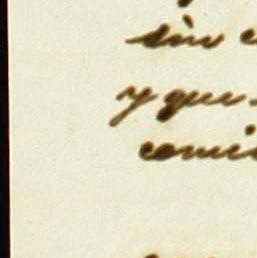 sin
y que
comi